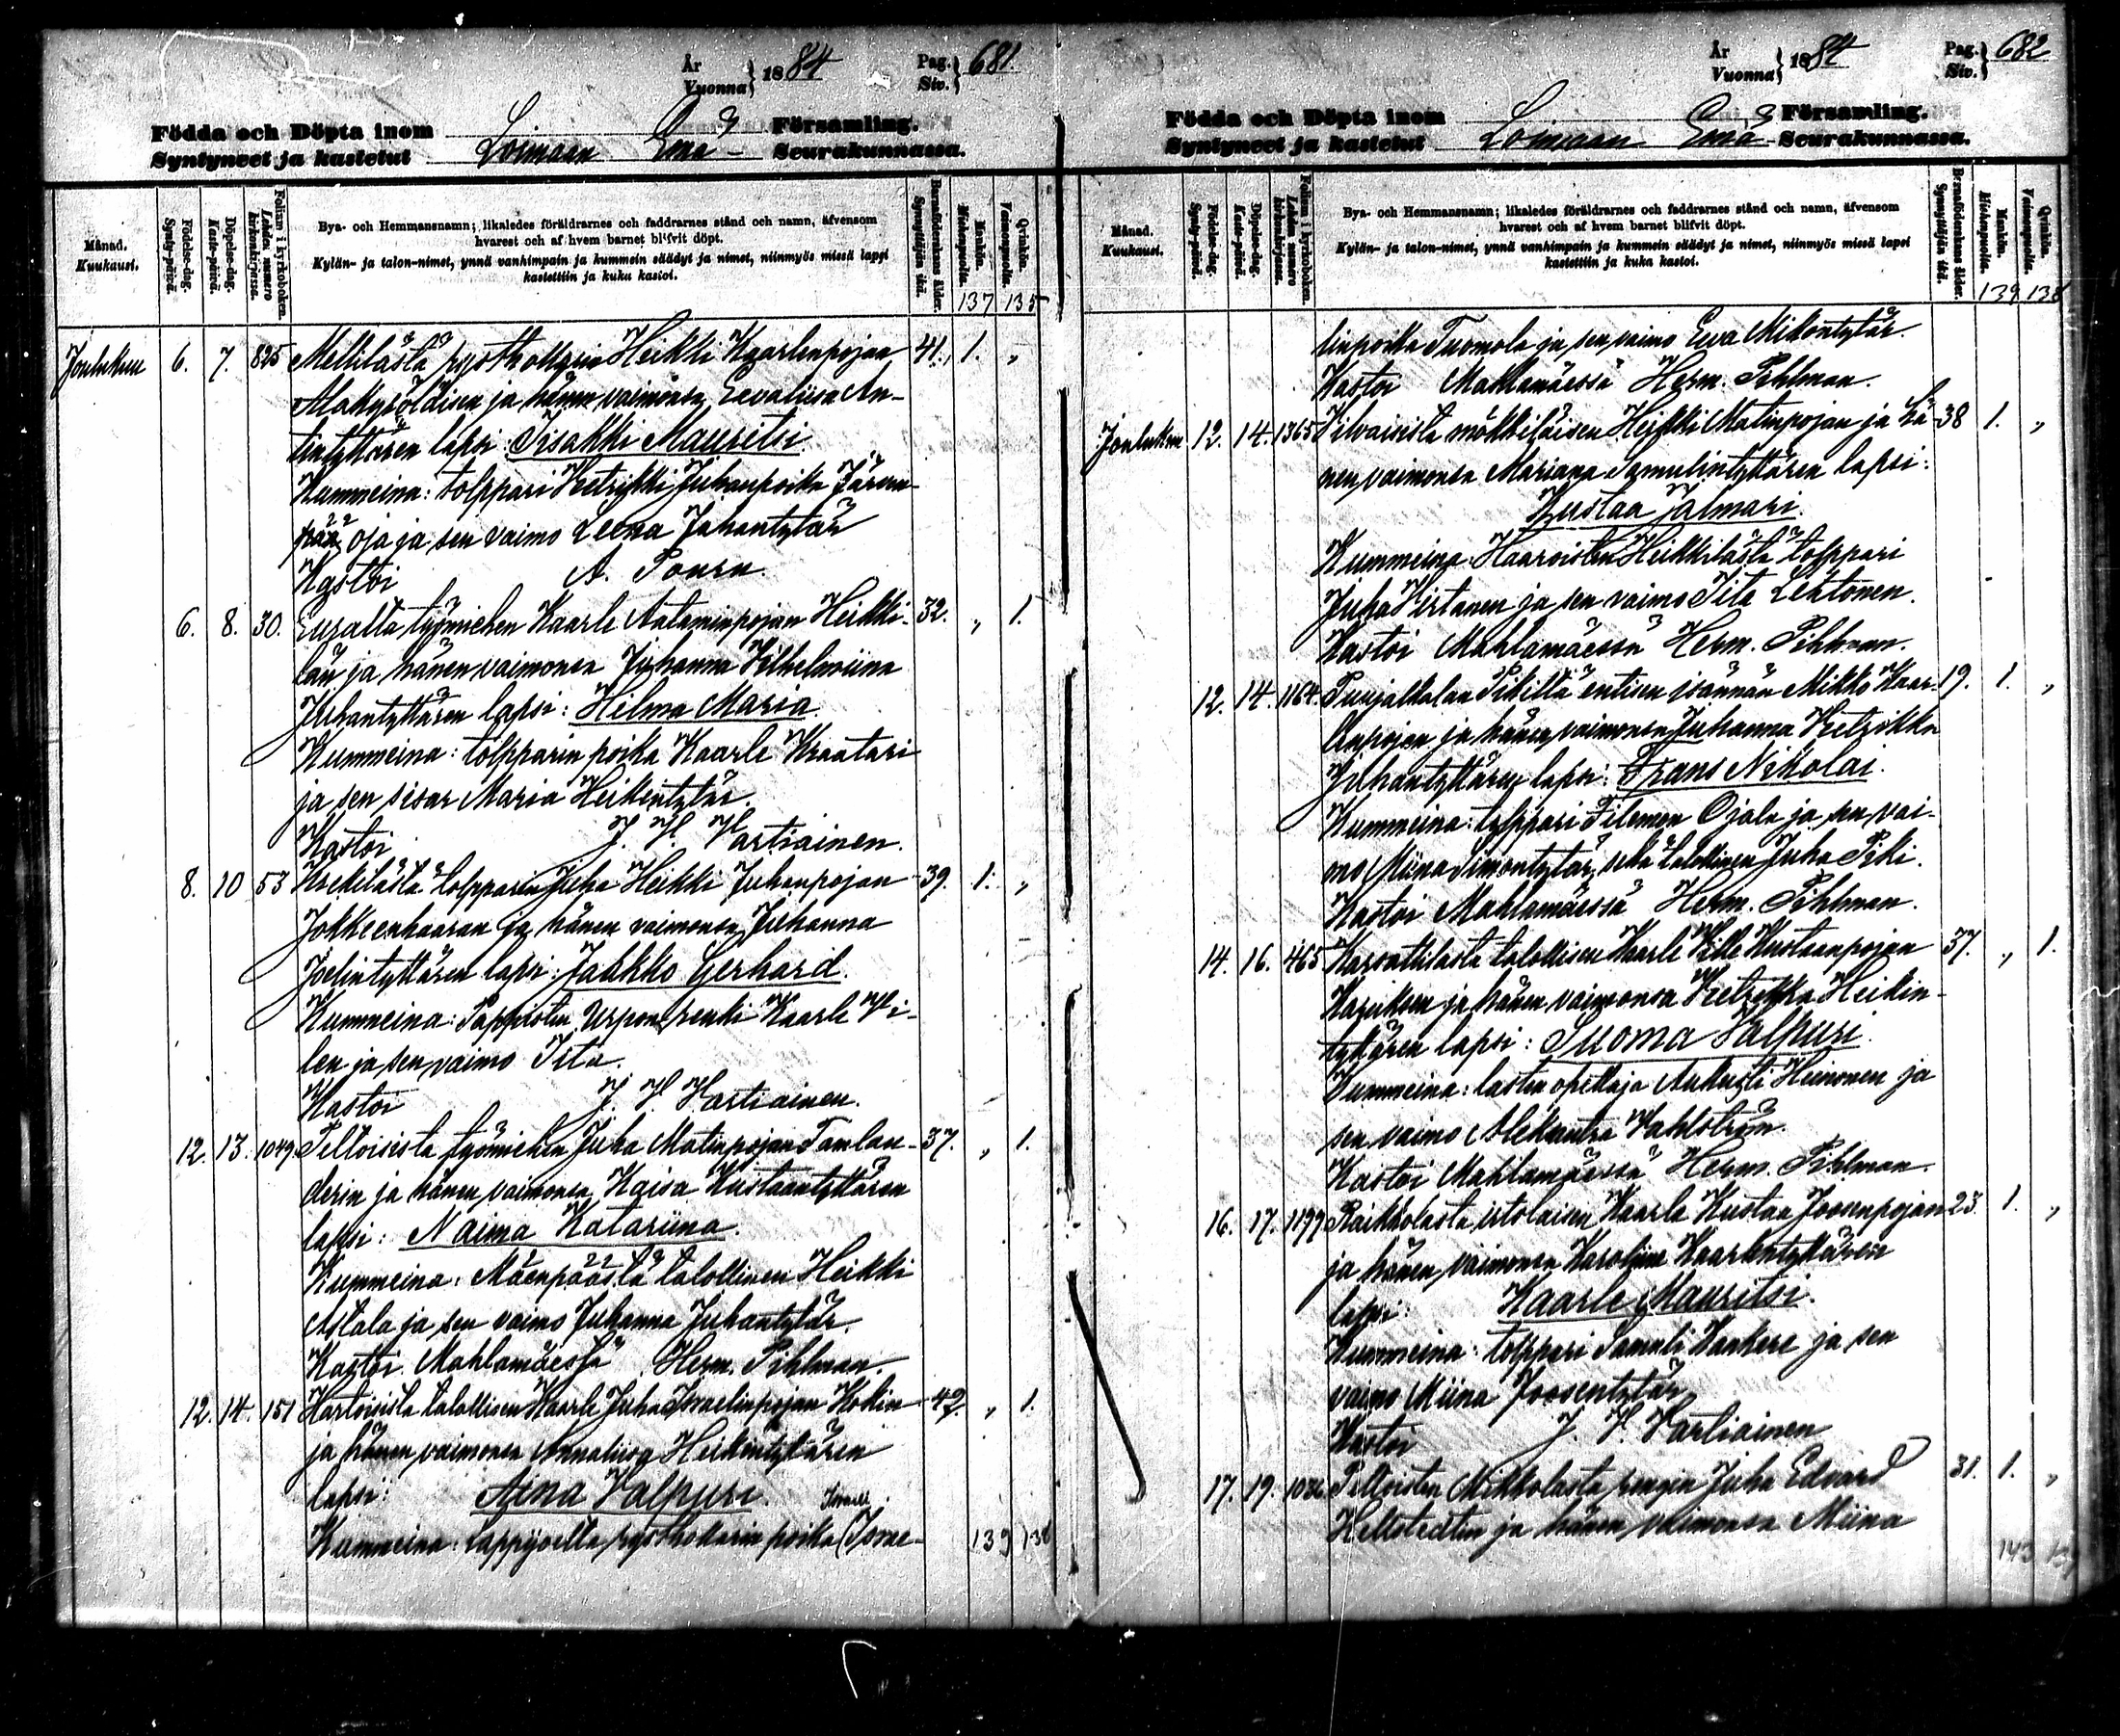 År
Vuonna } 1884 Pag.
Siv. } 681.
Födda och Döpta inom
Syntyneet ja kastetut Loimaan Emä- Församling.
Seurakunnassa.
Månad.
Kuukausi.
Födelse-dag.
Synty-päivä.
Döpelse-dag.
Kaste-päivä.
Folium i kyrkoboken.
Lehden numero kirkonkirjassa.
Bya- och Hemmansnamn; likaledes föräldrarnes och faddrarnes stånd och namn, äfvensom
hvarest och af hvem barnet blifvit döpt.
Kylän- ja talon-nimet, ynnä vanhimpain ja kummein säädyt ja nimet, niinmyös missä lapsi
kastettiin ja kuka kastoi.
Barnaföderskans ålder.
Synnyttäjän ikä.
Mankön.
Miehenpuolta.
Qvinkön.
Vaimonpuolta.
137 135
Joulukuu 6. 7. 825 Mellilästä rusthollarin Heikki Kaarlenpojan 41. 1. „
ja hänen vaimonsa Eevaliisa An-
tintyttären lapsi: Iisakki Mauritsi.
Kummeina: tolppari Ketrikki Juhanpoika
oja ja sen vaimo Leena Juhantytär
Kastoi A.
6. 8. 30. työmiehen Kaarle Aataminpojan Heikki- 32. „ 1.
län ja hänen vaimonsa Juhanna Wilhelmiina
Juhantyttären lapsi: Hilma Maria.
Kummeina: tolpparin poika Kaarle Kraatari
ja sen sisar Maria Heikintytär.
Kastoi J. H. Vartiainen.
8. 10 53 tolpparin Juha Heikki Juhanpojan 39. 1. „
Jokkeenhaaran ja hänen vaimonsa Juhanna
Joelintyttären lapsi: Jaakko Gerhard.
Kummeina: Pappisten Urpon renki Kaarle Vi-
len ja sen vaimo Iita.
Kastoi J. H. Vartiainen.
12. 13. 1049. Peltoisista työmiehen Juha Matinpojan Tamlan- 37. „ 1.
derin ja hänen vaimonsa Kaisa Kustaantyttären
lapsi: Naima Katariina.
Kummeina: Mäenpäästä talollinen Heikki
Astala ja sen vaimo Juhanna Juhantytär.
Kastoi Mahlamäessä Herm. Pihlman.
12. 14. 151 Hartoisista talollisen Kaarle Juha Israelinpojan 42. „ 1.
ja hänen vaimonsa Annaliisa Heikintyttären
lapsi: Aina Valpuri.
Kummeina: rusthollarin poika Israe-
139 138
År
Vuonna } 1884 Pag.
Siv. } 682
Födda och Döpta inom
Syntyneet ja kastetut Loimaan Emä- Församling.
Seurakunnassa.
Månad.
Kuukausi.
Födelse-dag.
Synty-päivä.
Döpelse-dag.
Kaste-päivä.
Folium i kyrkoboken.
Lehden numero kirkonkirjassa.
Bya- och Hemmansnamn; likaledes föräldrarnes och faddrarnes stånd och namn, äfvensom
hvarest och af hvem barnet blifvit döpt.
Kylän- ja talon-nimet, ynnä vanhimpain ja kummein säädyt ja nimet, niinmyös missä lapsi
kastettiin ja kuka kastoi.
Barnaföderskans ålder.
Synnyttäjän ikä.
Mankön.
Miehenpuolta.
Qvinkön.
Vaimonpuolta.
139 138
linpoika Tuomola ja sen vaimo Eva Mikontytär.
Kastoi Mahlamäessä Herm. Pihlman.
Joulukuu 12. 14. 1365 mökkiläisen Heikki Matinpojan ja hä- 38 1. „
nen vaimonsa Mariana Samulintyttären lapsi:
Kustaa Jalmari.
Kummeina: Haaroisten Heikkilästä tolppari
Juha Virtanen ja sen vaimo Iita Lehtonen.
Kastoi Mahlamäessä Herm. Pihlman.
12. 14. 1164. Puujalkalan entisen isännän Mikko Kaar- 19. 1. „
lenpojan ja hänen vaimonsa Juhanna Ketrikka
Juhantyttären lapsi: Frans Nikolai.
Kummeina: tolppari Filemon Ojala ja sen vai-
mo Miina Simontytär, sekä talollinen Juha
Kastoi Mahlamäessä Herm. Pihlman.
14. 16. 465 talollisen Kaarle Ville Kustaanpojan 37. „ 1.
ja hänen vaimonsa Heikin-
tyttären lapsi: Suoma Valpuri.
Kummeina: lasten opettaja Aukusti Heinonen ja
sen vaimo Aleksantra Vahlström.
Kastoi Mahlamäessä Herm. Pihlman.
16. 17. 1197 itsolaisen Kaarle Kustaa Joosenpojan 23. 1. „
ja hänen vaimonsa Karoliina Kaarlentyttären
lapsi: Kaarle Mauritsi.
Kummeina: tolppari Samuli Kankare ja sen
vaimo Miina Joosentytär
Kastoi J. H. Vartiainen
17. 19. 1036 Peltoisten Mikkolasta rengin Juha Edvard 31. 1. „
Hellstedtin ja hänen vaimonsa Miina
143